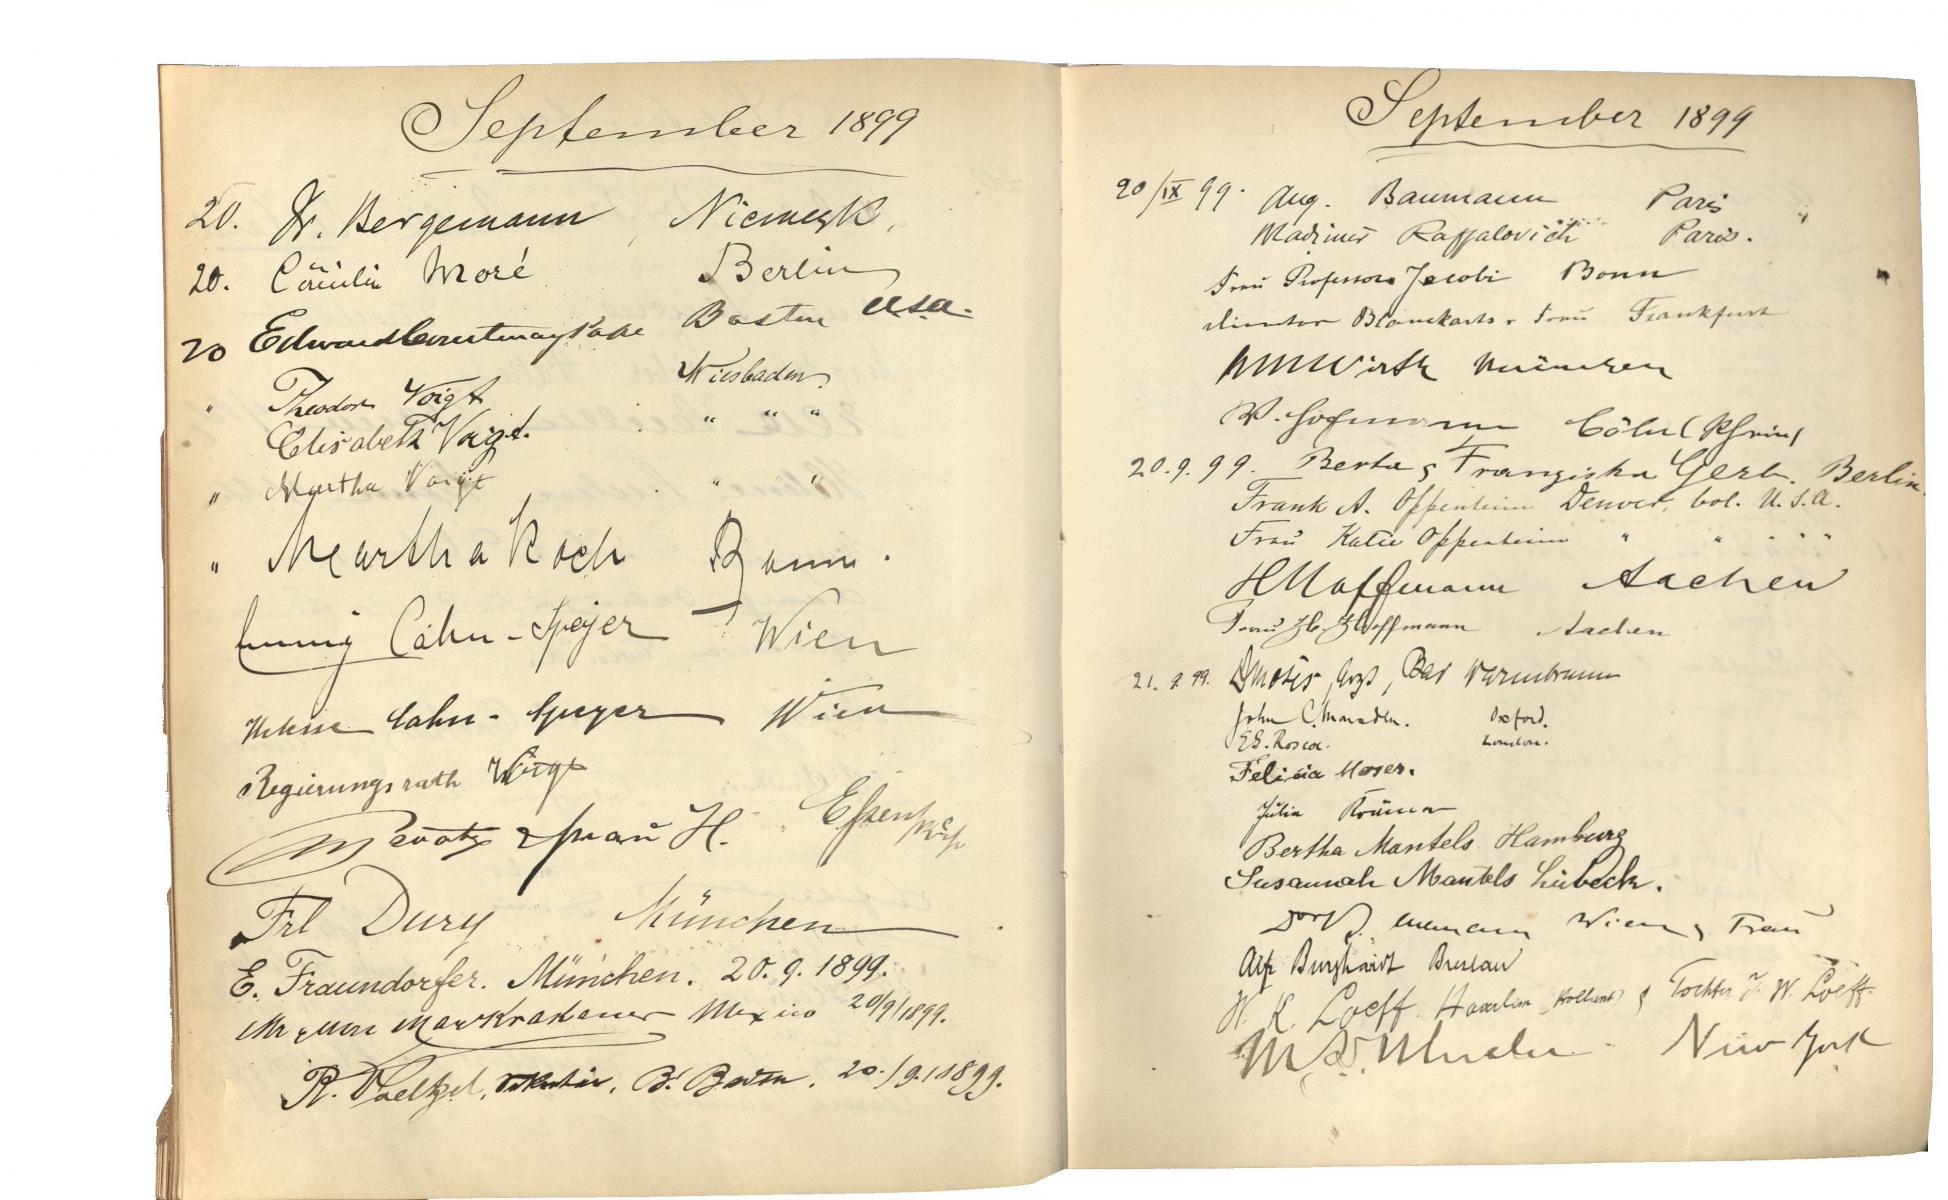 September 1899
20. Fr. Bergemann, Niemegk,
20. Cäcilie Moré Berlin
20 Edward Courtenay Pape Boston USA.
" Theodor Voigt Wiesbaden
Elisabeth Voigt. " " "
" Martha Voigt " "
" Martha Koch Bonn.
Cahn-Speyer Wien
Cahn-Speyer Wien
Regierungsrath Voigt
& Frau H. Essen
Frl Dury München
E. Fraundorfer. München. 20.9.1899.
Mr & Mrs Max Krakauer Mexico 20/9/1899.
R. B. 20./9.1899.
September 1899
20/IX 99. Aug. Baumann Paris
Wladimir Raffalovich Paris.
Frau Professor Jacobi Bonn
Director Blanckarts & Frau Frankfurt
Wirth München
W. Hofmann Cöln (Rhein)
20.9.99. Berta & Franziska Gerb. Berlin.
Frank A. Oppenheim Denver, Col. U.S.A.
Frau Katie Oppenheim " " " "
H Hoffmann Aachen
Frau H. Hoffmann Aachen
21.9.99. Dr Moses, Arzt, Bad Warmbrunn
John C. Marsden. Oxford.
E.S. Roscoe. London.
Felicia Moser.
Julia
Bertha Mantels Hamburg
Susannah Mantels Lübeck.
Wien & Frau
Alf Burghardt Breslau
W. K. Loeff. Haarlem (Holland) & Tochter J. W. Loeff.
M New York